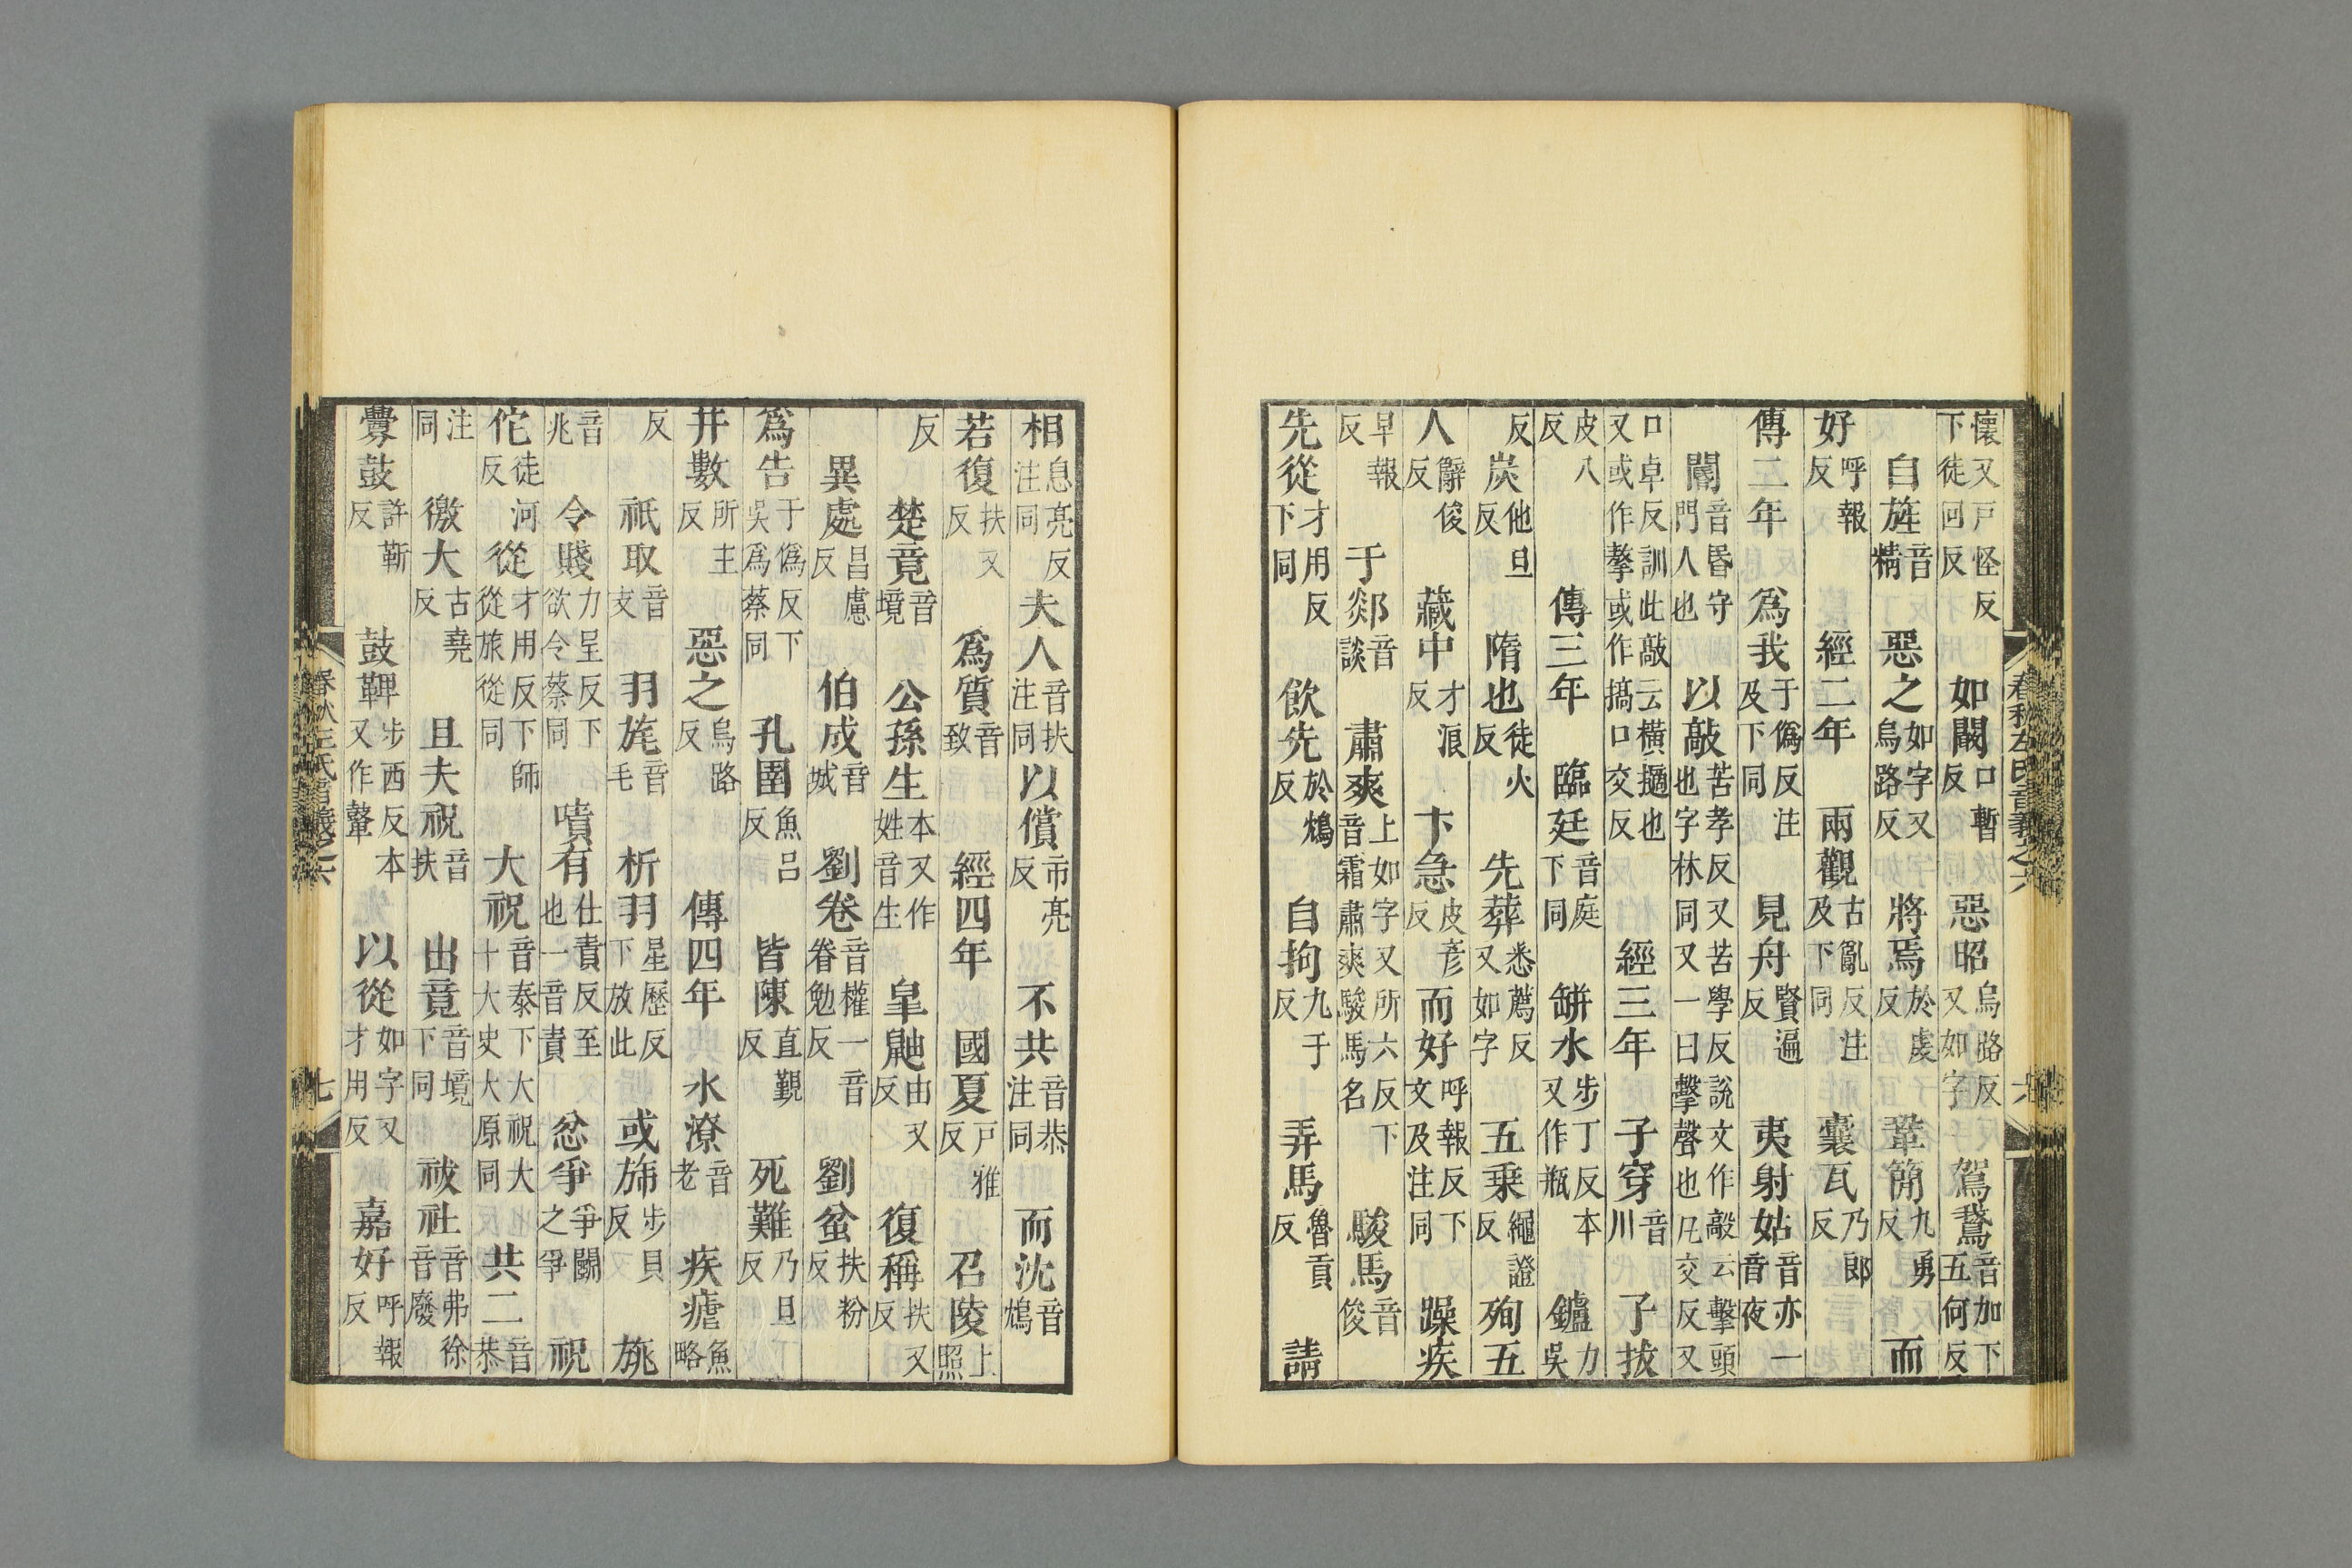 懷又戶怪反下徒回反 如闞口暫反 惡昭烏路反又如字 駕鵞音加下五何反
自旌音精 惡之如字又烏路反 將焉於虔反 鞏簡九勇反 而
好呼報反 經二年 兩觀古亂反注及下同 囊瓦乃郎反
傳二年 爲我于僞反注及下同 見舟賢遍反 夷射姑音亦一音夜
閽音昬守門人也 以敲苦孝反又苦學反說文作敲云擊頭也字林同又一曰擊聲也凡交反又
口卓反訓此敲云橫擿也又或作摮或作搞口交反 經三年 子穿音川 了拔
皮八反 傳三年 臨廷音庭下同 缾水步丁反本又作瓶 鑪力吳
反 炭他旦反 隋也徒火反 先葬悉薦反又如字 五乘繩證反 殉五
人辭俊反 藏中才浪反 卞急皮彥反 而好呼報反下文及注同 躁疾
早報反 于郯音談 肅爽上如字又所六反下音霜肅爽駿馬名 駿馬音俊
先從才用反下同 飲先於鴆反 自拘九于反 弄馬魯貢反 請
春秋左氏音義之六 六
相息亮反注同 夫人音扶注同 以償市亮反 不共音恭注同 而沈音鴆
若復扶又反 爲質音致 經四年 國夏戶雅反 召陵上照
反 楚竟音境 公孫生本又作姓音生 皐鼬由又反 復稱扶又反
異處昌慮反 伯成音城 劉卷音權一音眷勉反 劉蚠扶粉反
爲告于僞反下吳爲蔡同 孔圉魚呂反 皆陳直覲反 死難乃旦反
井數所主反 惡之烏路反 傳四年 水潦音老 疾瘧魚略
反 祇取音支 羽旄音毛 析羽星歷反下放此 或旆步貝反 旐
音兆 令賤力呈反下欲令蔡同 嘖有仕責反至也一音責 忿爭爭鬭之爭 祝
佗徒河反 從才用反下師從旅從同 大祝音泰下大祝大十大史大原同 共二音恭
注同 徼大古堯反 且夫祝音扶 出竟音境下同 祓社音弗徐音廢
釁鼓許靳反 鼓鞞步西反本又作鼙 以從如字又才用反 嘉好呼報反
春秋左氏音義之六 七